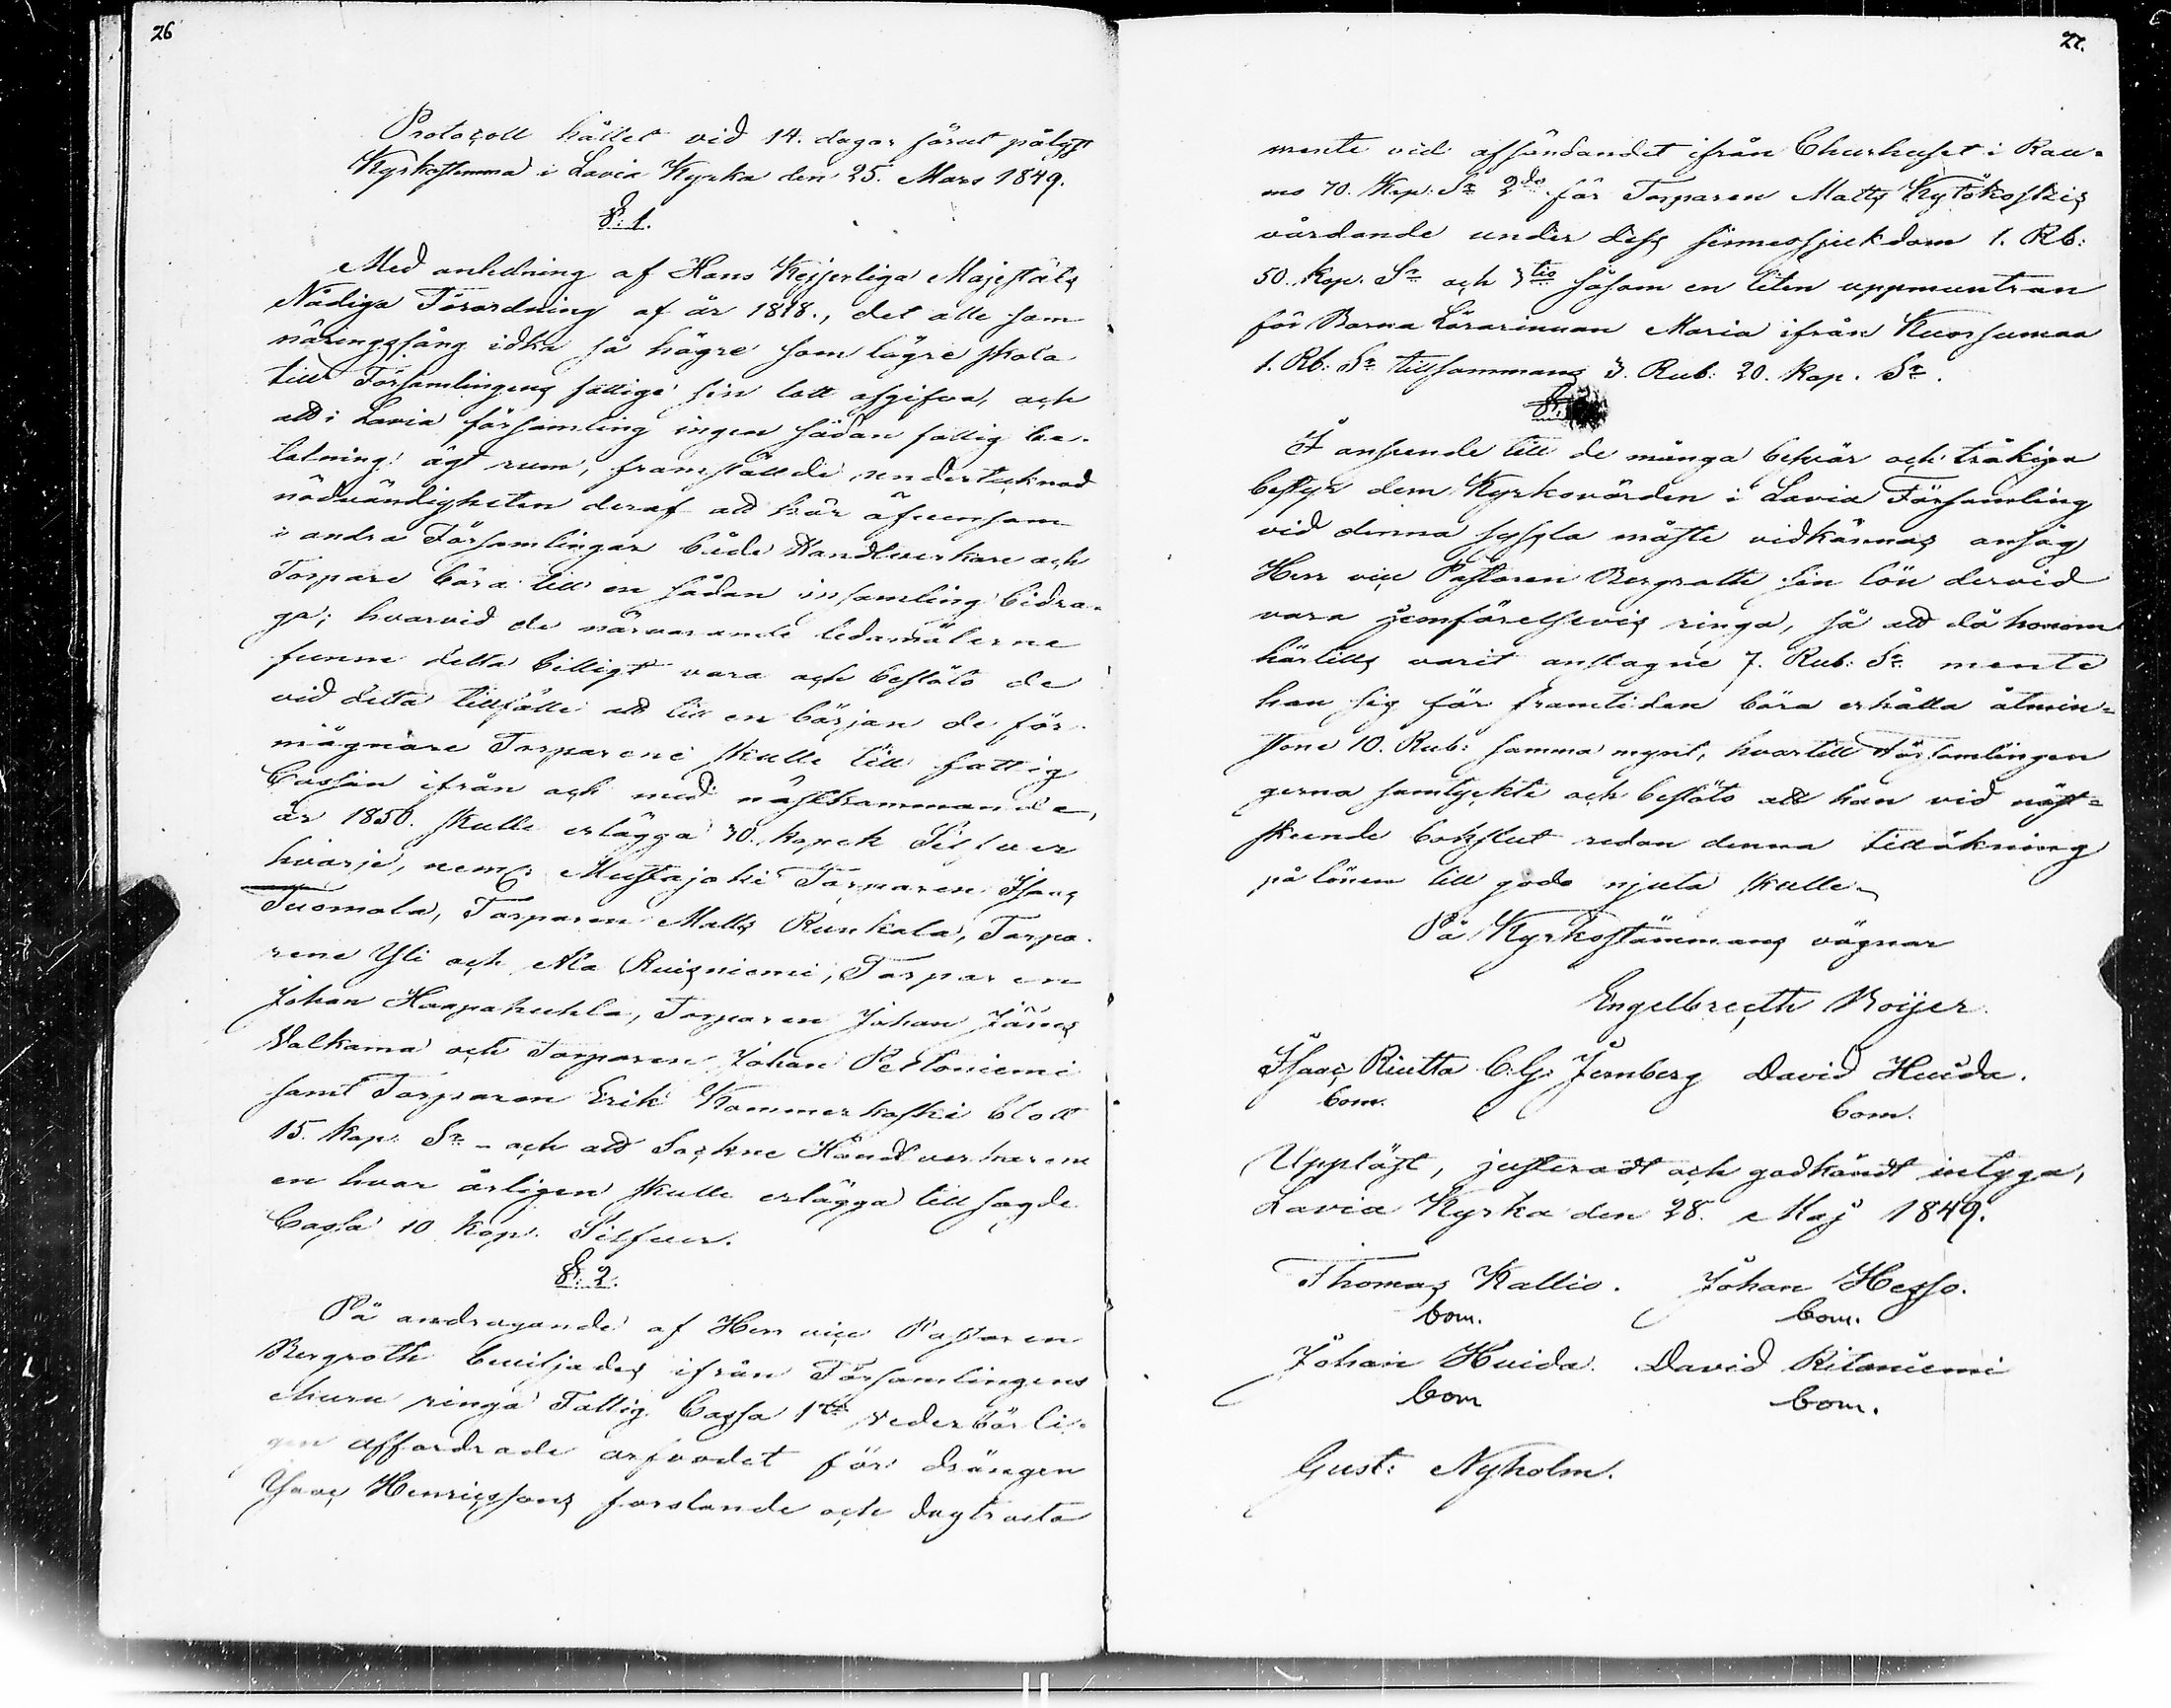 26
Protocoll hållet vid 14. dagar förut pålyst
Kyrkostemma i Lavia Kyrka den 25. Mars 1849.
§. 1.
Med anledning af Hans Kejserliga Majestäts
Nådiga Förordning af år 1818., det alle som
näringsfång idka så högre som lägre skola
till Församlingens fattige sin lott afgifva, och
att i Lavia församling ingen sådan fattig be-
talning ägt rum, framställde undertecknad
nödvändigheten deraf att här äfvensom
i andra Församlingar både Handtverkare och
Torpare böra till en sådan insamling bidra-
ga; hvarvid de närvarande ledamöterne
funno detta billigt vara och beslöto de
vid detta tillfälle att till en början de för-
mögnare Torparene skulle till fattig
Cassan ifrån och med nästkommande
år 1850. skulle erlägga 30. kopek Silfver
hvarje, neml: Mustajoki Torparen Isaac
Tuomala, Torparen Matts Runkala, Torpa-
rene Yli och Ala Ruisniemi, Torparen
Johan Haapakuhla, Torparen Johan Jänes
Valkama och Torparen Johan Peltoniemi
samt Torparen Erik Kommerkoski blott
15. kop: Sr - och att Sockne Handtverkarene
en hvar årligen skulle erlägga till sagde
Cassa 10 kop. Silfver.
§. 2.
På andragande af Herr vice Pastoren
Bergroth beviljades ifrån Församlingens
ehuru ringa Fattig Cassa 1o vederbörli-
gen affordrade arfvodet för drängen
Isaac Henricssons forslande och dagtracta
27.
mente vid afsändandet ifrån Churhuset i Rau-
mo 70. Kop: Sr 2do för Torparen Matts Kytökoskis
vårdande under dess sinnessjukdom 1. Rb:
50. kop. Sr och 3tio såsom en liten uppmuntran
för Barna Lärarinnan Maria ifrån Kuorsumaa
1. Rb: Sr tillsammans 3. Rub: 20. kop. Sr.
§.
I anseende till de många besvär och tråkiga
bestyr dem Kyrkovärden i Lavia Församling
vid denna syssla måste vidkännas ansåg
Herr vice Pastoren Bergroth sin lön dervid
vara jemförelsevis ringa, så att då honom
härtills varit anslagne 7. Rub: Sr mente
han sig för framtiden böra erhålla åtmin-
stone 10. Rub: samma mynt, hvartill Församlingen
gerna samtyckte och beslöto att han vid näst-
skeende bokslut redan denna tillökning
på lönen till godo njuta skulle.
På Kyrkostämmans vägnar
Engelbrecth Roijer.
Isaac Riutta C.G. Jernberg David Huida.
bom. bom.
Uppläst, justeradt och godkändt intyga,
Lavia Kyrka den 28. Maj 1849.
Thomas Kallio. Johan Hesso.
bom. bom.
Johan Huida. David Ritaniemi
bom bom.
Gust: Nyholm.